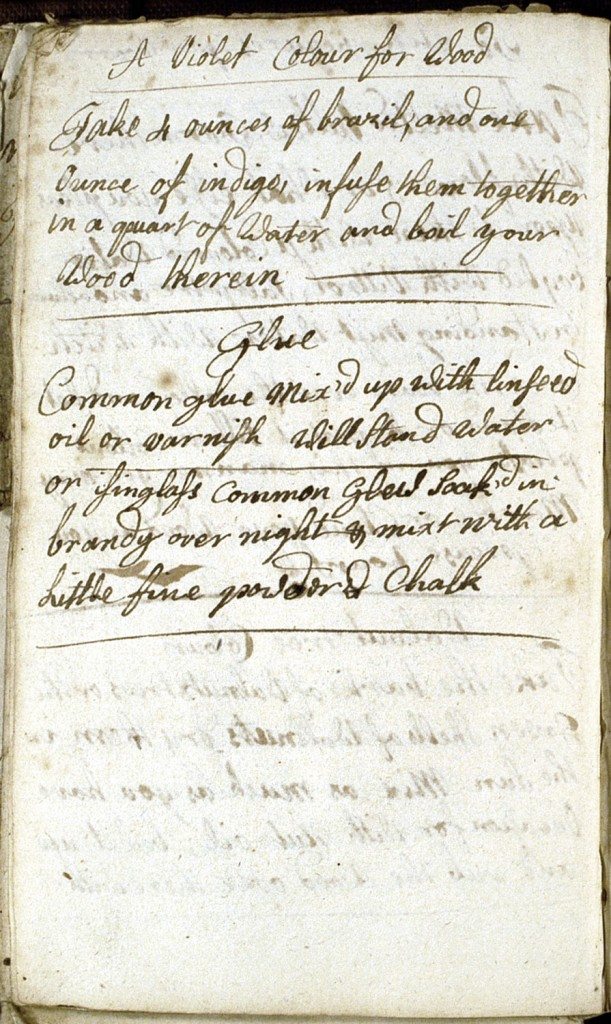 A Violet Colour for Wood
Take 4 ounces of brazil, and one
Ounce of indigo, infuse them together
in a quart of Water and boil your
Wood therein
Glue
Common glue Mix'd up with linseed
oil or varnish Will Stand Water
or isinglass Common Glew Soak'd in
brandy over night & mixt with a
little fine powder'd Chalk